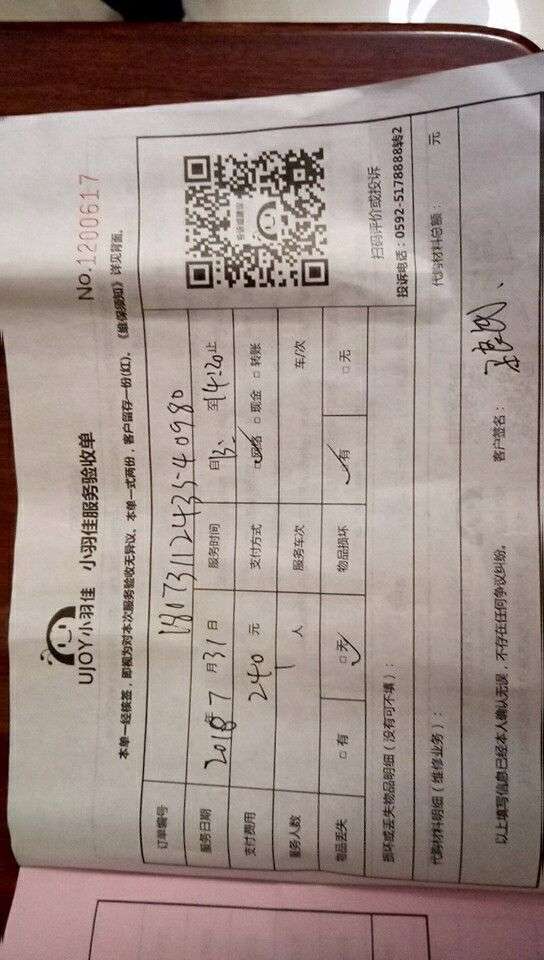 UJOY小羽佳 小羽佳服务验收单 No.1200617
本单一经核签，即视为对本次服务验收无异议。本单一式两份，客户留存一份(红)。《维保须知》详见背面。
订单编号 1807311243540980
服务日期 2018年7月31日 服务时间 自13: 至14:20止
支付费用 240元 支付方式 ☑网络 □现金 □转账
服务人数 1人 服务车次 车/次
物品丢失 □有 ☑无 物品损坏 ☑有 □无
扫码评价或投诉
投诉电话：0592-5178888转2
损坏或丢失物品明细（没有可不填）：
代购材料明细（维修业务）： 代购材料总额： 元
以上填写信息已经本人确认无误，不存在任何争议纠纷。 客户签名：